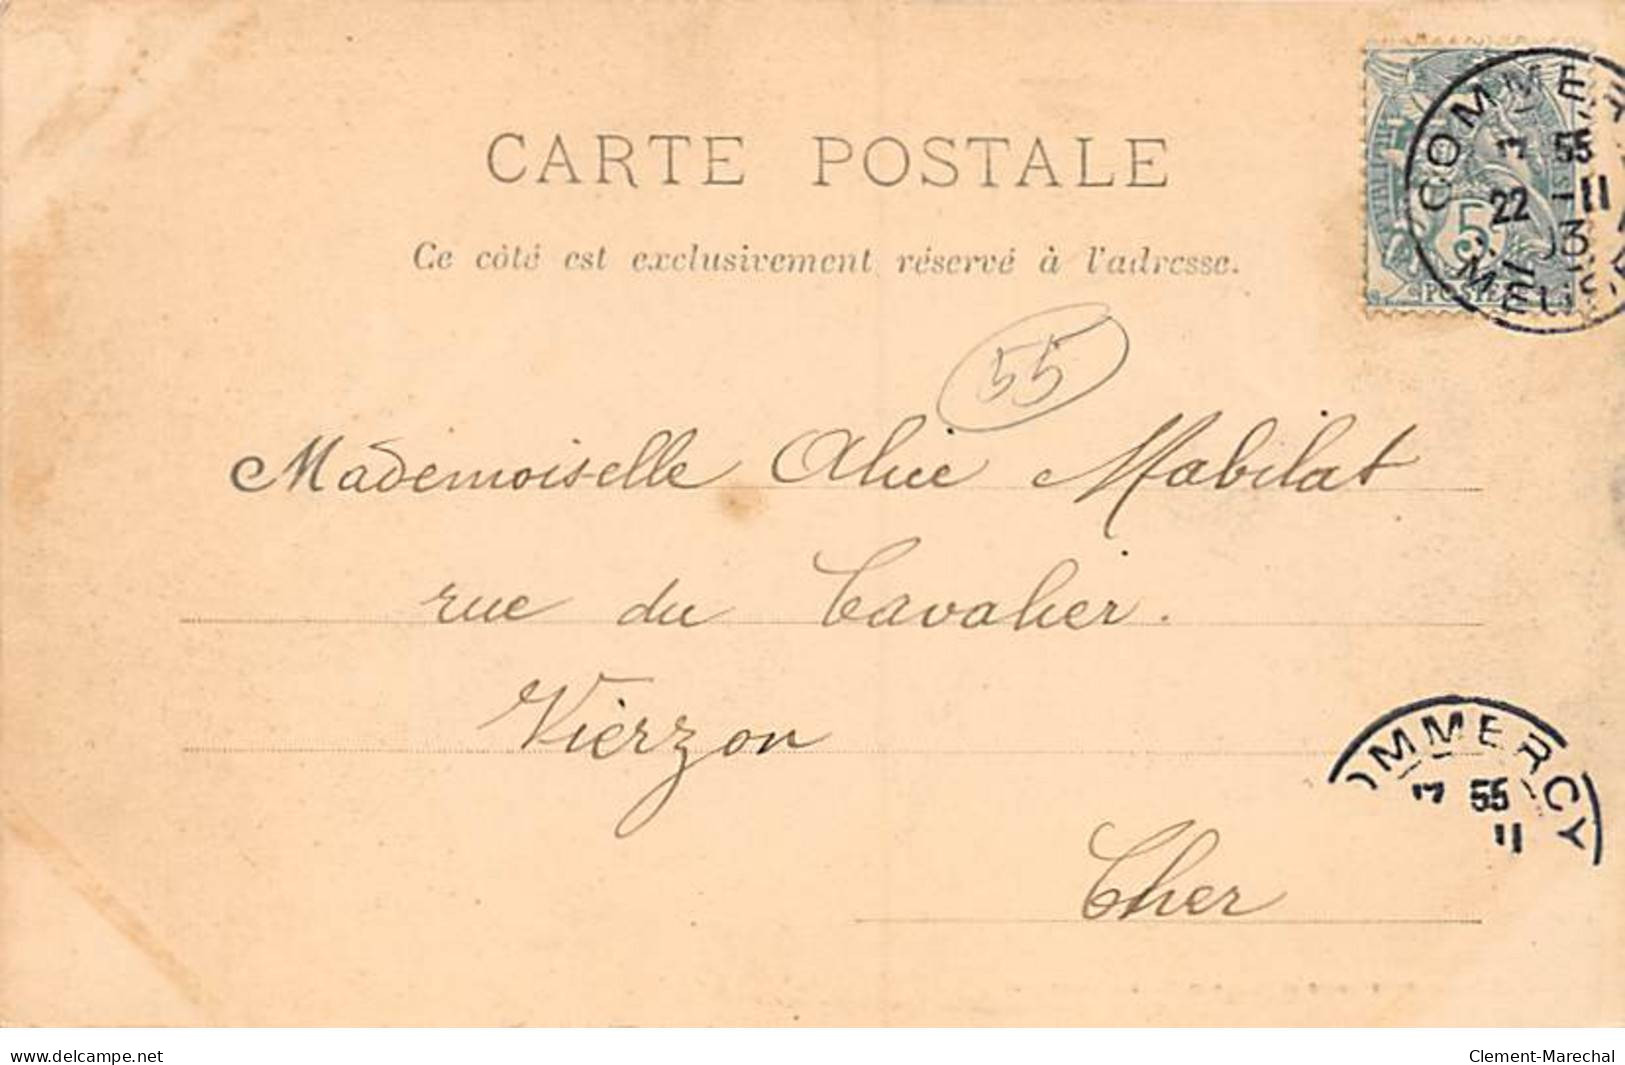 CARTE POSTALE
Ce côté est exclusivement réservé à l'adresse.
5
POSTE
COMMER
7 55
22 -11
03
MEUSE
55
Mademoiselle Alice Mabilat
rue du Cavalier.
Vierzon
Cher
OMMERCY
7 55
11
www.delcampe.net
Clement-Marechal